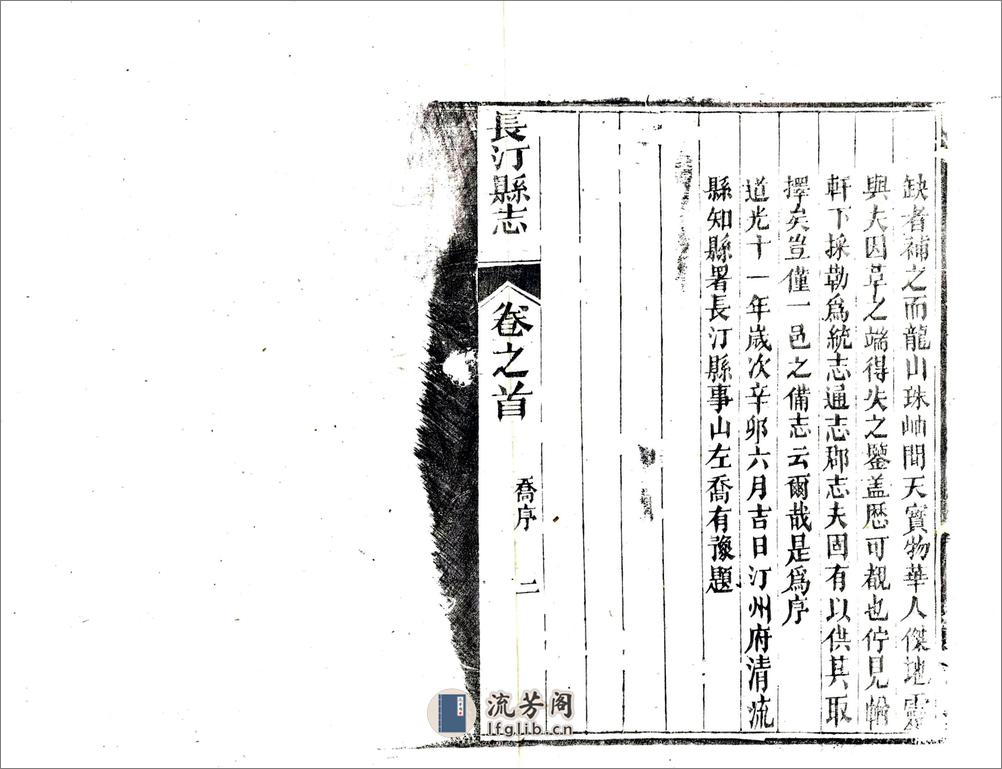 缺者補之而龍山珠岫間天寶物華人傑地靈
與夫因革之端得失之鑒盖歷可覩也佇見輶
軒下採勒爲統志通志郡志夫固有以供其取
擇矣豈僅一邑之備志云爾哉是爲序
道光十一年歲次辛卯六月吉日汀州府清流
縣知縣署長汀縣事山左喬有豫題
長汀縣志
卷之首
喬序
二
流芳阁
lfglib.cn